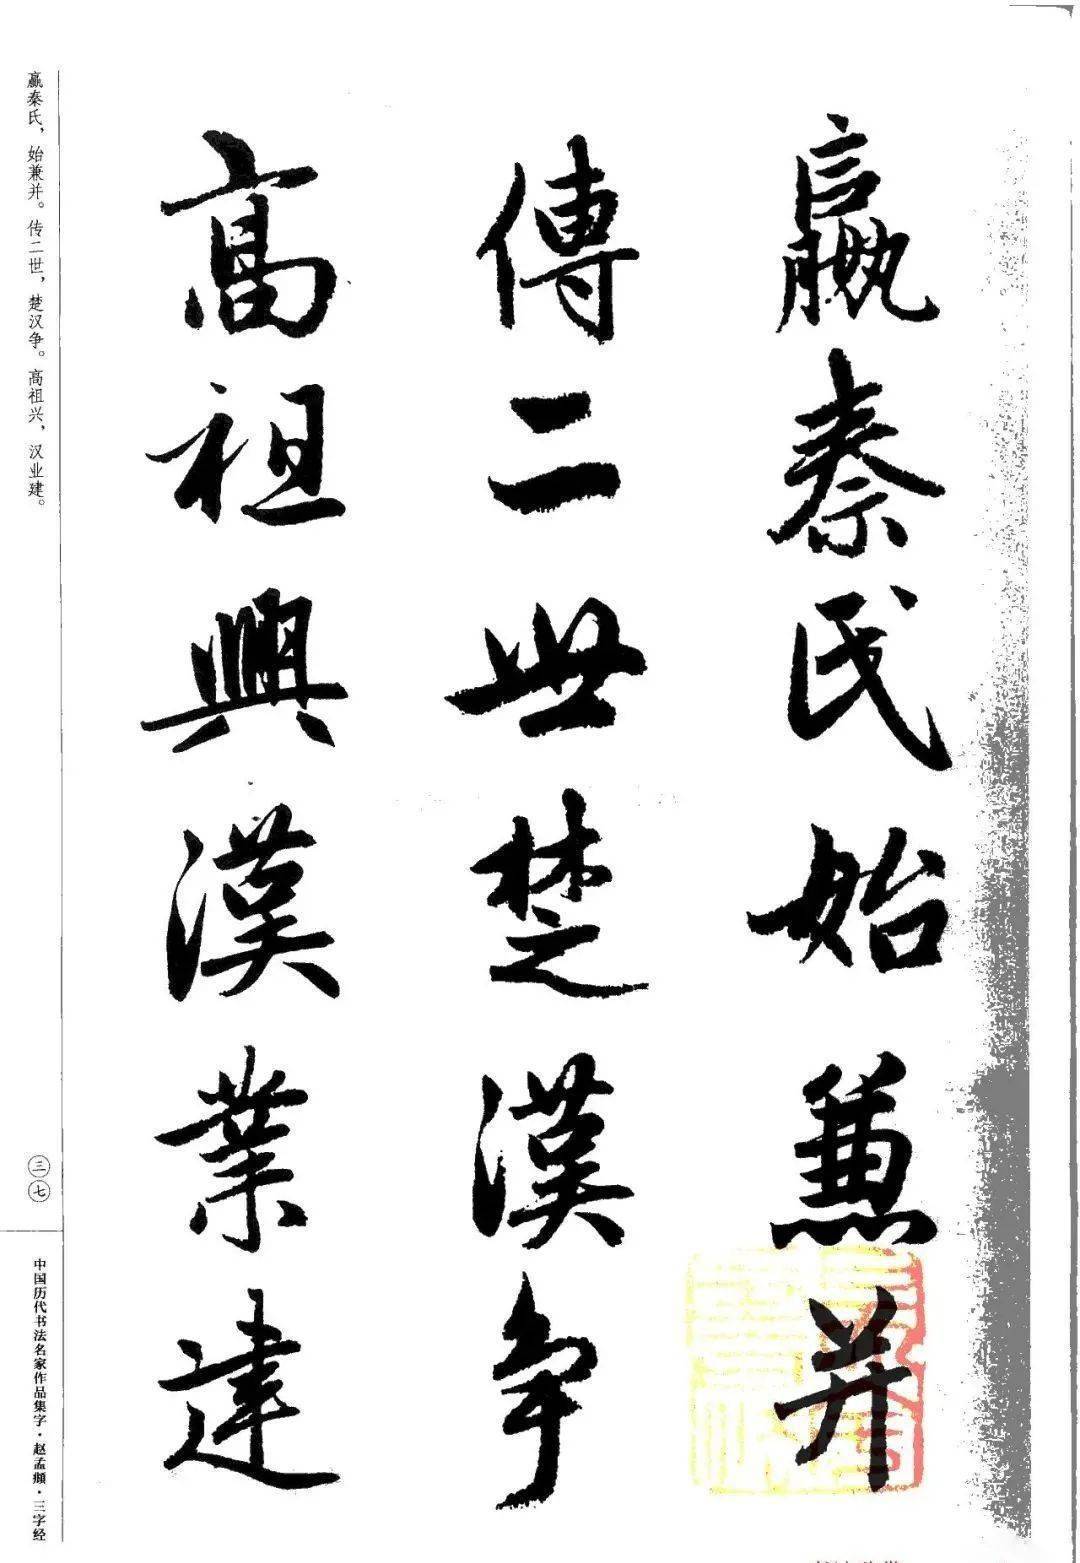 嬴秦氏始兼并
傳二世楚漢争
高祖興漢業建
嬴秦氏，始兼并。传二世，楚汉争。高祖兴，汉业建。
三七
中国历代书法名家作品集字·赵孟頫·三字经